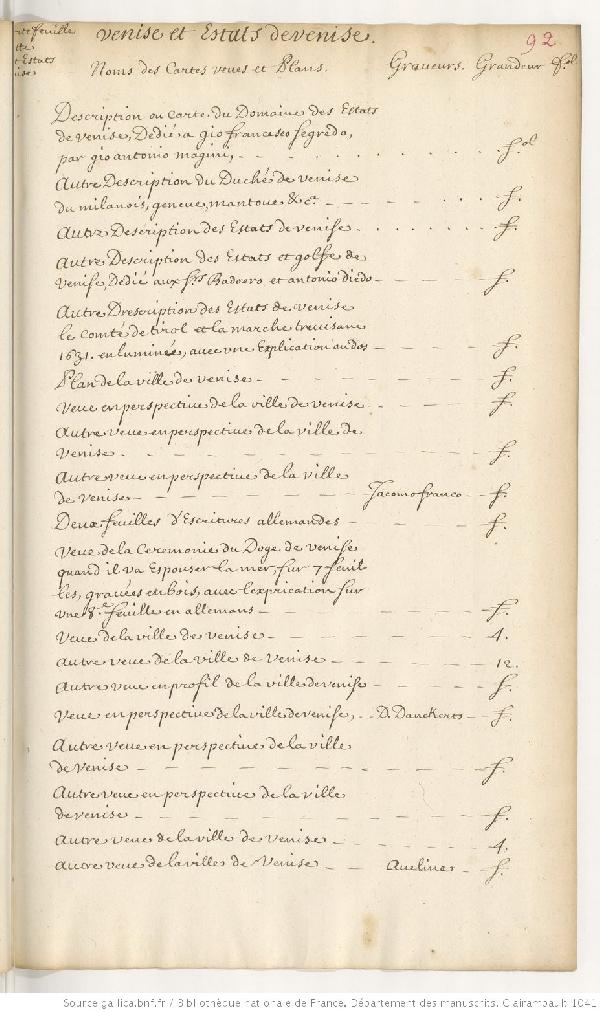 Venise et Estats de Venise.
92
Noms des Cartes veues et Plans. Graveurs. Grandeur fol.
Description ou carte du Domaine des Estats
de Venise, Dédié a gio francesco segredo,
par gio antonio magini, fol
Autre Description du Duché de Venise
du milanois, geneve, mantoue &c. f.
Autre Description des Estats de Venise f.
Autre Description des Estats et golfe de
Venise Dedié aux Srs Badoero et antonio Diedo f.
Autre Drescription des Estats de Venise
le comté de tirol et la marche trevisane
1631. enluminée, avec vne Explication au dos f.
Plan de la ville de Venise f.
Veue en perspective de la ville de Venise f.
Autre veue en perspective de la ville de
Venise. f.
Autre veue en perspective de la ville
de Venise Jacomo franco f.
Deux feuilles d'Escritures allemandes f.
Veue de la Ceremonie du Doge de Venise
quand il va Espouser la mer, sur 7 feuil
les, gravées en bois, avec l'exprication sur
vne 8.e feuille en allemans f.
Veue de la ville de Venise 4.
Autre veue de la ville de Venise 12.
Autre veue en profil de la ville de Venise f.
Veue en perspective de la ville de Venise, D. Danckerts f.
Autre Veue en perspective de la ville
de Venise f.
Autre veue en perspective de la ville
de Venise f.
Autre veue de la ville de Venise 4.
Autre veue de la villes de Venise Aveline f.
Source gallica.bnf.fr / Bibliothèque nationale de France. Département des manuscrits. Clairambault 1041